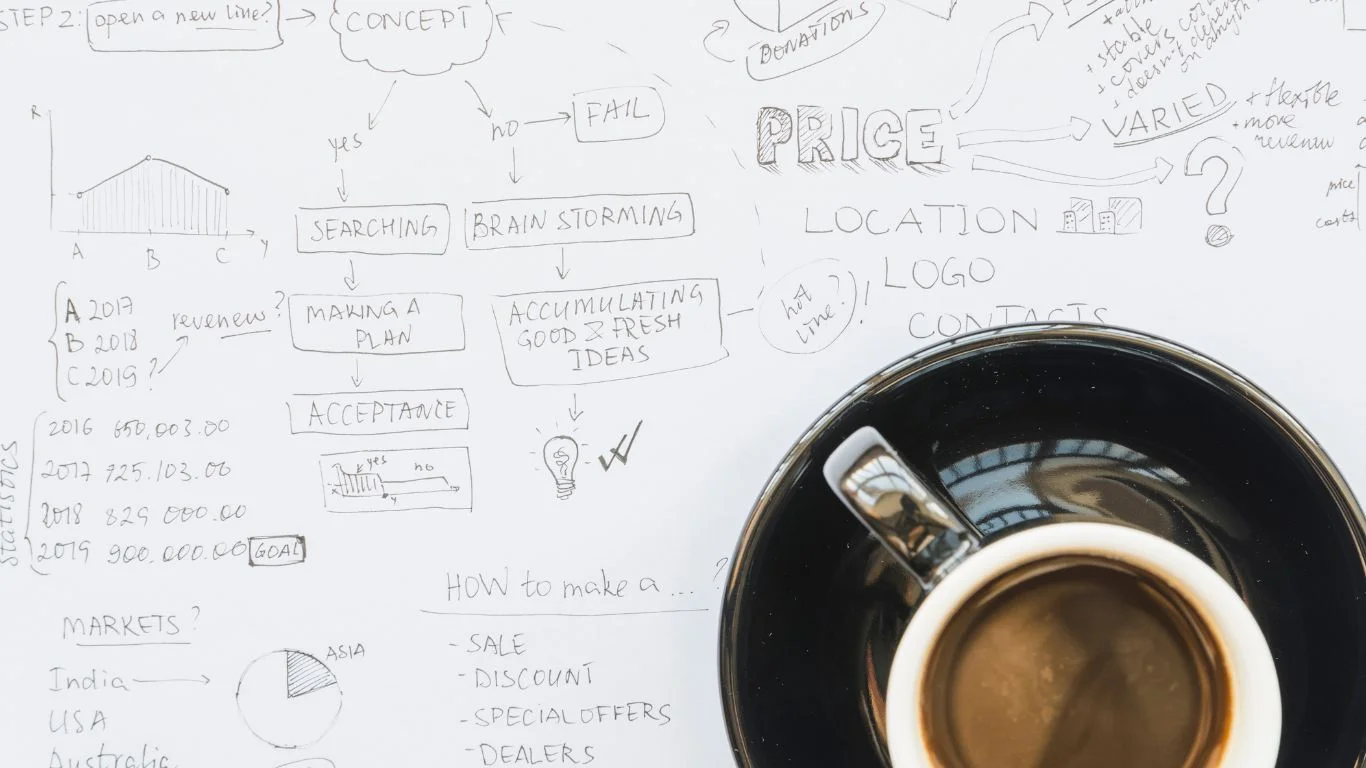 STEP 2: open a new line?
CONCEPT
yes
no
FAIL
SEARCHING
BRAIN STORMING
MAKING A
PLAN
ACCUMULATING
GOOD & FRESH
IDEAS
ACCEPTANCE
yes
no
y
R
A
B
C
y
A 2017
B 2018
C 2019?
revenew?
STATISTICS
2016 650,003.00
2017 725.103.00
2018 829 000.00
2019 900.000.00 GOAL
MARKETS?
India
USA
Australia
ASIA
HOW to make a ... ?
- SALE
- DISCOUNT
- SPECIAL OFFERS
- DEALERS
hot
line?!
DONATIONS
PRICE
+ stable
+ covers
+ doesn't depend
on
VARIED
+ flexible
+ more
revenew
?
price
costs
LOCATION
LOGO
CONTACTS